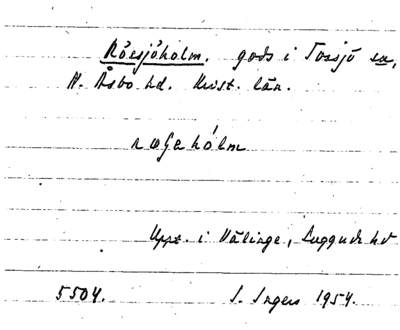 Rössjöholm. gods i Tossjö sn,
N. Åsbo hd. Krist. län.
Uppt. i Välinge, Luggude hd
5504. I. Ingers 1954.